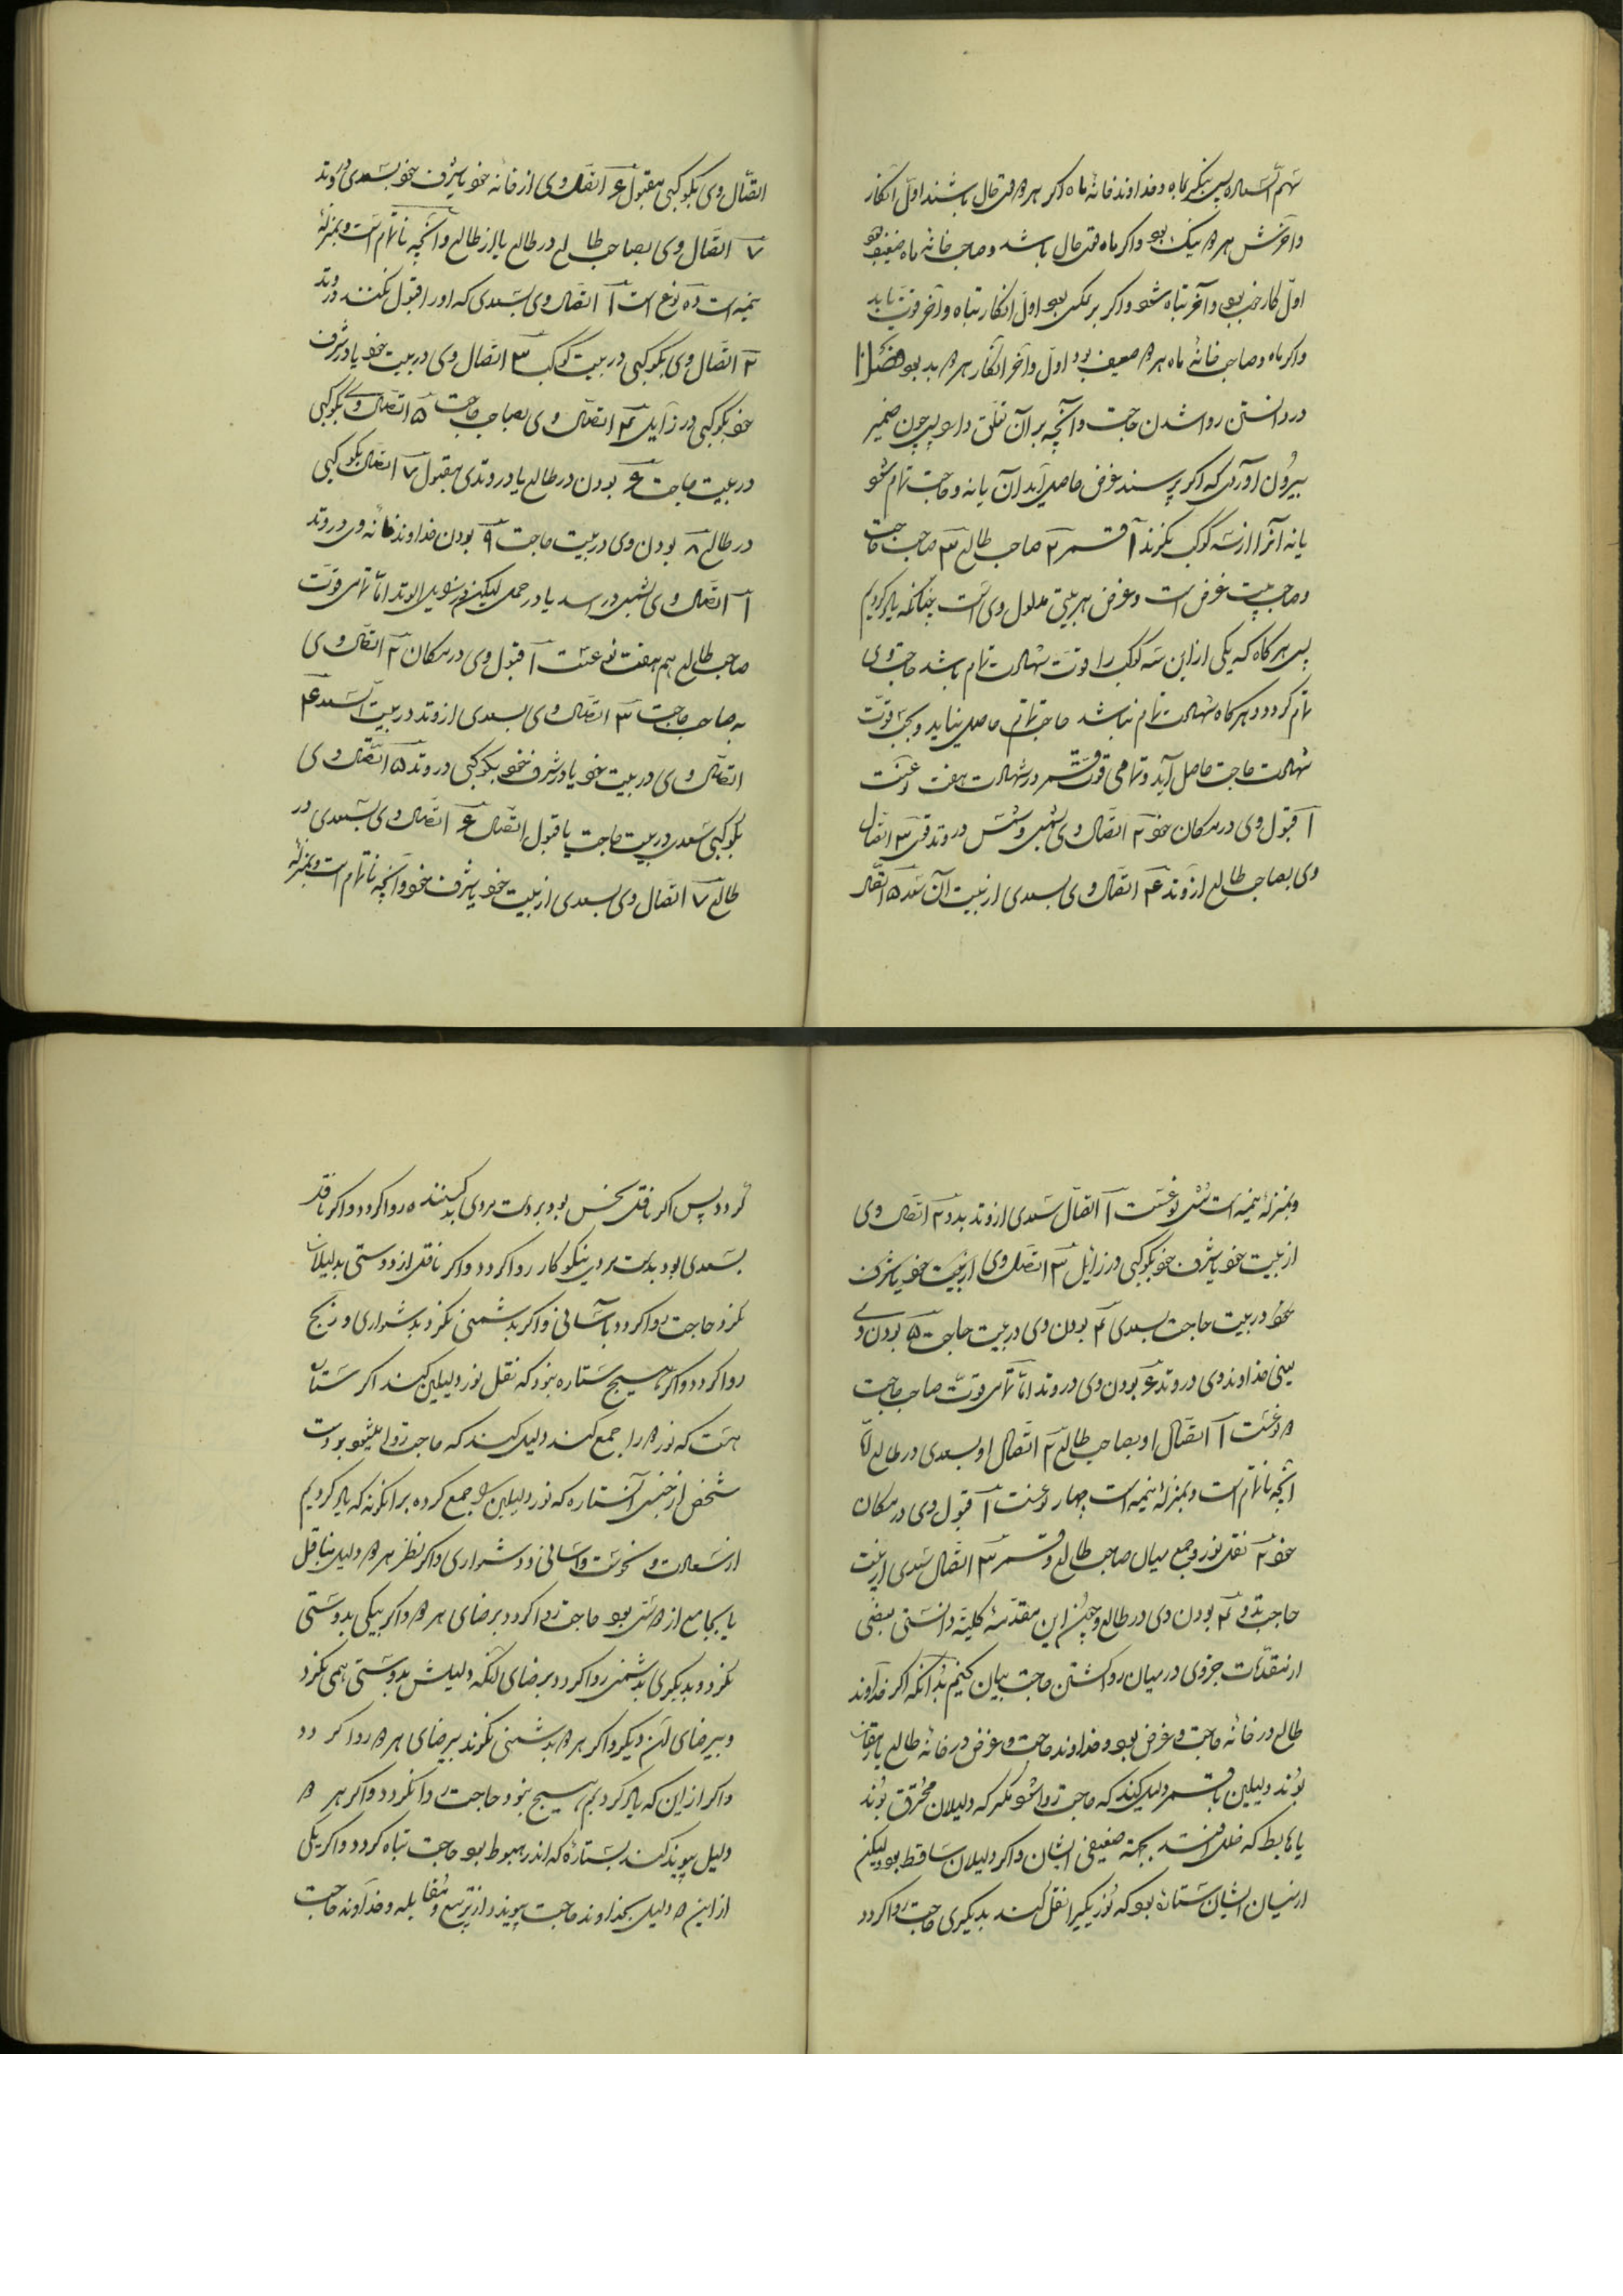 سهم السعاده پس بنگر بماه و خداوند خانهٔ ماه اگر هر دو قوی حال باشند اول آنکار
و آخرش هر دو نیک بود و اگر ماه قوی حال باشد و صاحب خانهٔ ماه ضعیف بود
اول کار خوب بود و آخر تباه شود و اگر برعکس بود اول آنکار تباه و آخر قوت یابد
و اگر ماه و صاحب خانهٔ ماه هر دو ضعیف بود اول و آخر آنکار هر دو بد بود فصل
در دانستن روا شدن حاجت و آنچه بر آن تعلق دارد پس چون ضمیر
بیرون آوردی که اگر پرسند غرض حاصل آید آن یا نه و حاجت تمام شود
یا نه آنرا از سه کوکب بنگرند ۱ قمر ۲ صاحب طالع ۳ صاحب حاجت
و صاحب بیت غرض است و غرض هر بیتی مدلول وی است چنانکه یاد کردیم
پس هرگاه که یکی از این سه کوکب را قوت شهادت تمام باشد حاجت وی
تمام گردد و هرگاه شهادت تمام نباشد حاجت تمام حاصل نیاید و بحسب قوت
شهادت حاجت حاصل آید و تمامی قوت قمر در شهادت هفت نوعست
۱ قبول وی در مکان خود ۲ اتصال وی بشمس و شمس در وتد قوی ۳ اتصال
وی بصاحب طالع از وتد ۴ اتصال وی بسعدی از بیت آن سعد ۵ اتصال
اتصال وی بکوکبی مقبول ۶ اتصال وی از خانه خود یا شرف خود بسعدی در وتد
۷ اتصال وی بصاحب طالع در طالع یا از طالع و آنچه ناتمام است و بمنزلهٔ
نیمه است ده نوع است ۱ اتصال وی بسعدی که او را قبول نکنند در وتد
۲ اتصال وی بکوکبی در بیت کوکب ۳ اتصال وی در بیت خود یا در شرف
خود بکوکبی در زایل ۴ اتصال وی بصاحب حاجت ۵ اتصال وی بکوکبی
در بیت حاجت ۶ بودن در طالع یا در وتدی مقبول ۷ اتصال بکوکبی
در طالع ۸ بودن وی در بیت حاجت ۹ بودن خداوند خانه وی در وتد
۱۰ اتصال وی بشمس در اسد یا در حمل لیکن در زایل الوتد اما تمامی قوت
صاحب طالع هم هفت نوعست ۱ قبول وی در مکان ۲ اتصال وی
به صاحب حاجت ۳ اتصال وی بسعدی از وتد در بیت آن سعد ۴
اتصال وی در بیت خود یا در شرف خود بکوکبی در وتد ۵ اتصال وی
بکوکبی سعدی در بیت حاجت یا قبول اتصال ۶ اتصال وی بسعدی در
طالع ۷ اتصال وی بسعدی از بیت خود یا شرف خود و آنچه ناتمام است و بمنزلهٔ
و بمنزلهٔ نیمه است شش نوعست ۱ اتصال سعدی از وتد بدو ۲ اتصال وی
از بیت خود یا شرف خود بکوکبی در زایل ۳ اتصال وی از بیت خود یا شرف
خود در بیت حاجت بسعدی ۴ بودن وی در بیت حاجت ۵ بودن وی
یعنی خداوند وی در وتد ۶ بودن وی در وتد اما تمامی قوت صاحب حاجت
دو نوعست ۱ اتصال او بصاحب طالع ۲ اتصال او بسعدی در طالع اما
آنچه ناتمام است و بمنزلهٔ نیمه است چهار نوعست ۱ قبول وی در مکان
خود ۲ نقل نور و جمع میان صاحب طالع و قمر ۳ اتصال سعدی از بیت
حاجت بدو ۴ بودن وی در طالع و چون این مقدمه کلیه دانستی بعضی
از مقدمات جزوی در میان روا گشتن حاجت بیان کنیم بدانکه اگر خداوند
طالع در خانه حاجت و غرض بود و خداوند حاجت و غرض در خانه طالع یا مقارن
بوند دلیلین با قمر دلیل کند که حاجت روا شود مگر که دلیلان محترق بوند
یا هابط که خلل افتد بجهة ضعیفی ایشان و اگر دلیلان ساقط بود لیکن
از میان ایشان ستاره بود که نور یکیرا نقل کند بدیگری حاجت روا گردد
گردد پس اگر ناقل نحس بود بر دست مردی بد کننده روا گردد و اگر ناقل
سعدی بود بدست مردی نیکو کار روا گردد و اگر ناقل از دوستی بدلیلان
نگرد حاجت روا گردد بآسانی و اگر بدشمنی نگرد بدشواری و رنج
روا گردد و اگر هیچ ستاره نبود که نقل نور دلیلین کند اگر ستاره
هست که نور دو را جمع کند دلیل کند که حاجت روا میشود بر دست
شخصی از جنس آن ستاره که نور دلیلین بود جمع کرده بر آنگونه که یاد کردیم
از سعادت و نحوست و آسانی و دشواری و اگر نظر هر دو دلیل بناقل
یا بجامع از دوستی بود حاجت روا گردد برضای هر دو و اگر بیکی بدوستی
نگرد و بدیگری بدشمنی روا گردد برضای آنکه دلیلش بدوستی همی نگرد
و بیرضای آن دیگر و اگر هر دو بدشمنی نگرند بیرضای هر دو روا گردد
و اگر از این که یاد کردیم هیچ نبود حاجت روا نگردد و اگر هر دو
دلیل پیوند کند بستارهٔ که اندر هبوط بود حاجت تباه گردد و اگر یکی
از این دو دلیل بخداوند حاجت پیوندد از تربیع و مقابله و خداوند حاجت